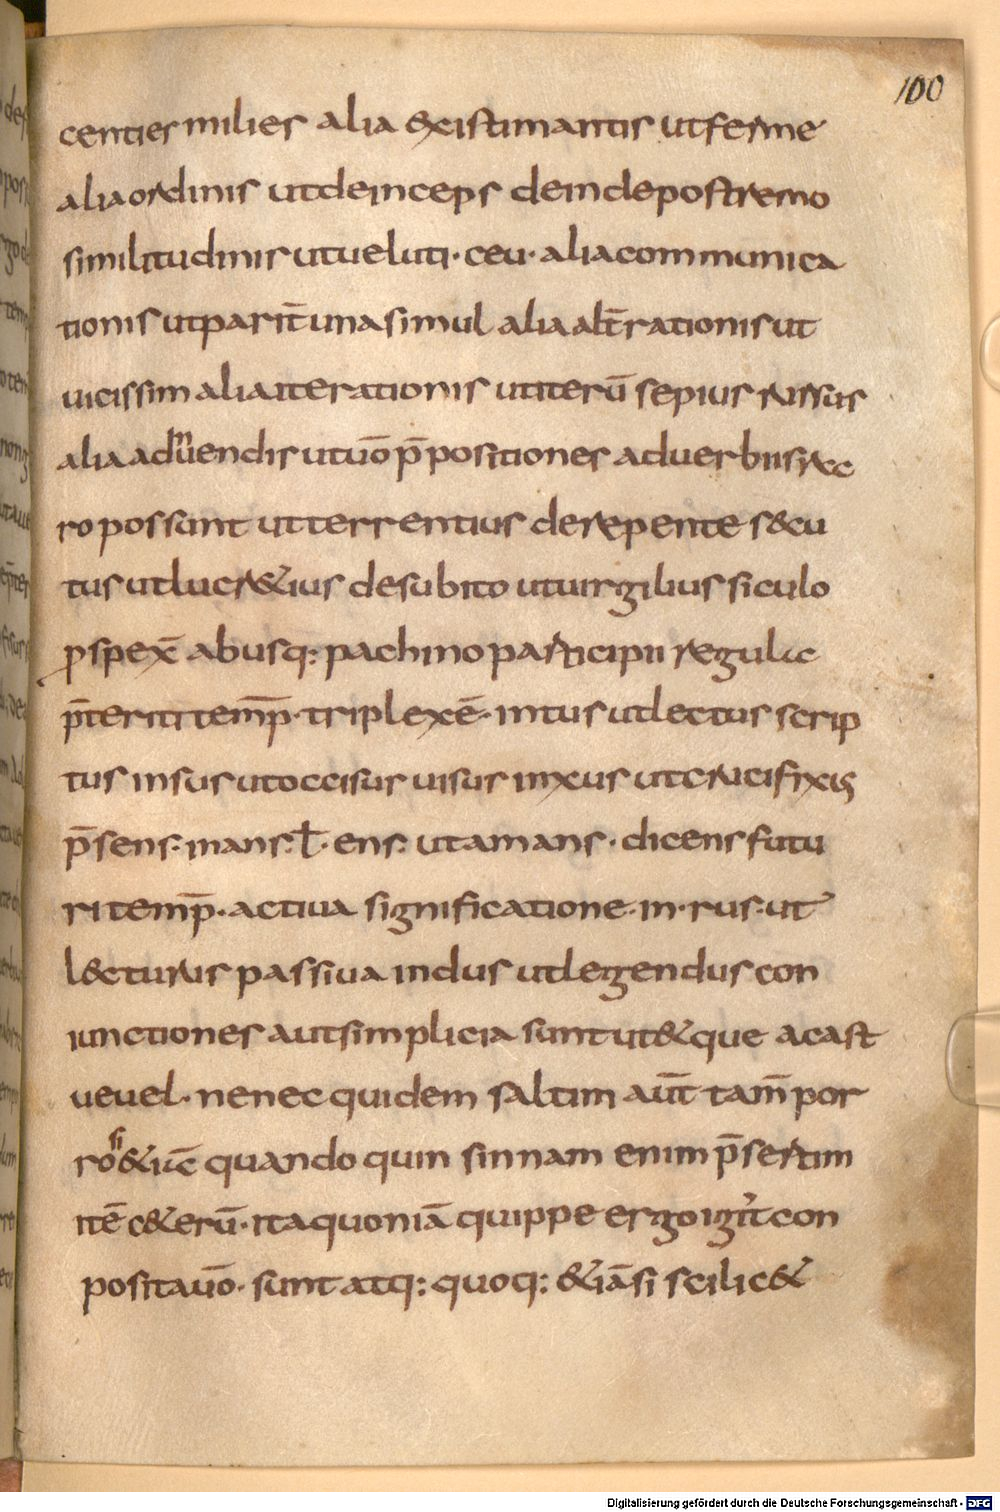 100
centies milies alia existimantis ut ferme
alia ordinis ut deinceps dein de postremo
similitudinis ut ueluti · ceu · alia communica
tionis ut parit̄ una simul alia alt̄rationis ut
uicissim alia iterationis ut iterū sepius rursus
alia aduendis ut uō p̄positiones aduerbiis iec
ro possunt ut terrentius derepente s&cu
tus ut lucr&ius desubito ut uirgilius siculo
prospex̄ abusq: pachino participii regulic
p̄teriti temp̄ · triplex ē · in tus ut lectus scrip
tus in sus ut occisus uisus in xus ut crucifixus
p̄sens · in ans · ł · ens · ut amans · dicens futu
ri temp̄ · actiua significatione · in · rus · ut
l&cturus passiua in dus ut legendus con
iunctiones aut simplicia sunt ut & que ac ast
ue uel · ne nec quidem saltim aut̄ tam̄ por
ro & quando quin sin nam enim p̄sertim
itē c&erū · ita quoniā quippe ergo igit̄ con
posita uō · sunt atq: quoq: &iā si scilic&
Digitalisierung gefördert durch die Deutsche Forschungsgemeinschaft - DFG